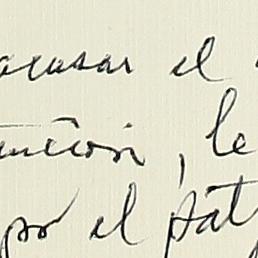 acusar el
ención, le
por el pát